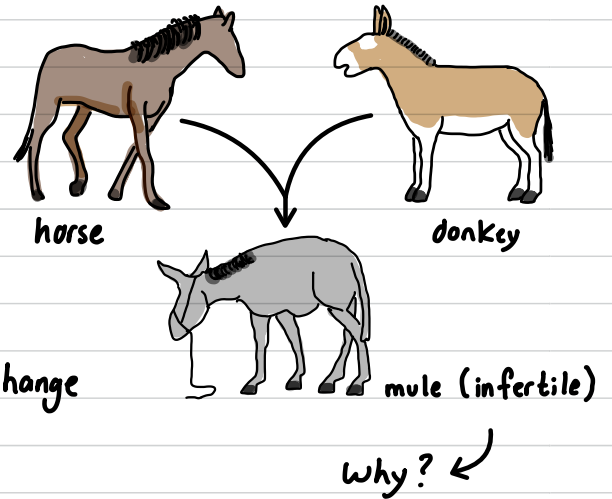 horse donkey
hange mule (infertile)
Why?